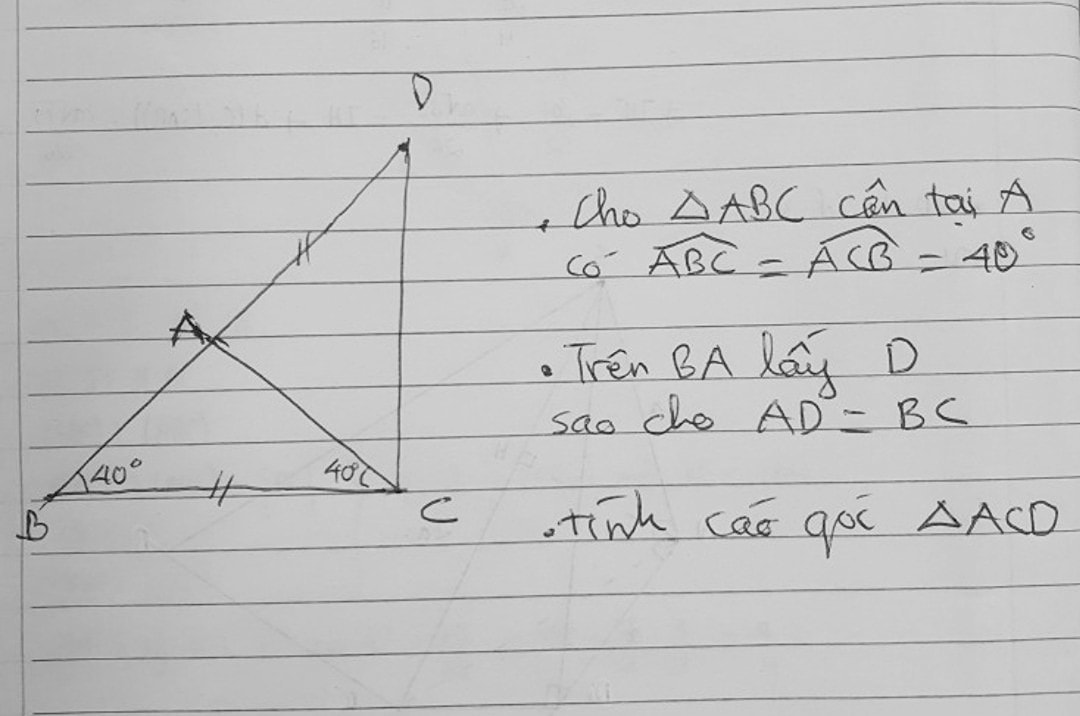 D
A
40°
40°
B
C
. Cho △ABC cân tại A
có \widehat{ABC} = \widehat{ACB} = 40°
. Trên BA lấy D
sao cho AD = BC
. tính các góc △ACD